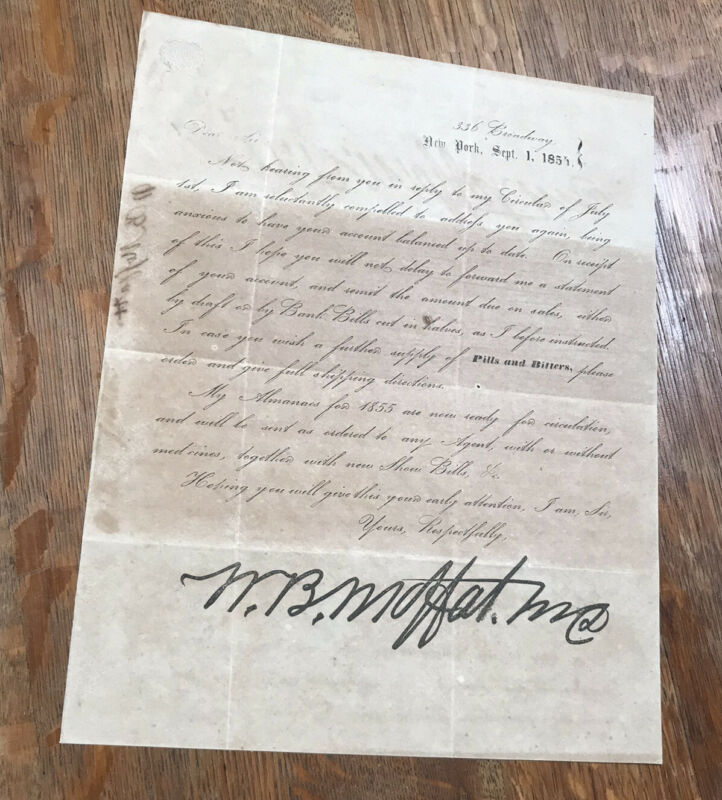 336 Broadway,
New York, Sept. 1, 1854.
Dear Sir
Not hearing from you in reply to my Circular of July
1st, I am reluctantly compelled to address you again, being
anxious to have your account balanced up to date. On receipt
of this I hope you will not delay to forward me a statement
of your account, and remit the amount due on sales, either
by draft or by Bank Bills cut in halves, as I before instructed.
In case you wish a further supply of Pills and Bitters, please
order and give full shipping directions.
My Almanacs for 1855 are now ready for circulation,
and will be sent as ordered to any Agent, with or without
medicines, together with new Show Bills, &c.
Hoping you will give this your early attention, I am, Sir,
Yours, Respectfully,
W. B. Moffat. MD